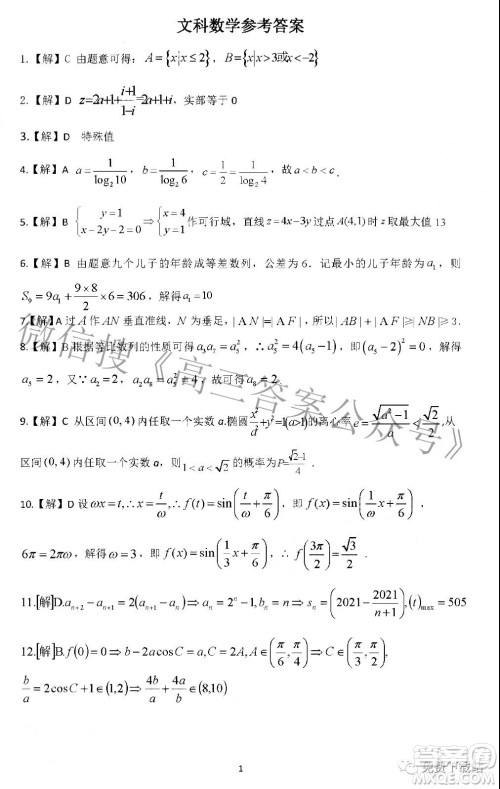 文科数学参考答案
1.【解】C 由题意可得：A={x|x≤2}，B={x|x>3或x<-2}
2.【解】D z=2a+1+\frac{i+1}{1-i}=2a+1+i，实部等于0
3.【解】D 特殊值
4.【解】A a=\frac{1}{\log_2 10}，b=\frac{1}{\log_2 6}，c=\frac{1}{2}=\frac{1}{\log_2 4}，故a<b<c.
5.【解】B {y=1, x-2y-2=0 ⇒ {x=4, y=1 作可行域，直线z=4x-3y过点A(4,1)时z取最大值13
6.【解】B 由题意九个儿子的年龄成等差数列，公差为6．记最小的儿子年龄为a_1，则
S_9=9a_1+\frac{9×8}{2}×6=306，解得a_1=10
7【解】A过A作AN垂直准线，N为垂足，|AN|=|AF|，所以|AB|+|AF|≥3.
8.【解】B根据等比数列的性质可得a_3a_7=a_5^2，∴a_5^2=4(a_5-1)，即(a_5-2)^2=0，解得
a_5=2，又∵a_2a_8=a_5^2，故可得a_8=2.
9.【解】C 从区间(0,4)内任取一个实数a,椭圆\frac{x^2}{a^2}+y^2=1(a>1)的离心率e=\frac{\sqrt{a^2-1}}{a}<\frac{\sqrt{2}}{2},从
区间(0,4)内任取一个实数a，则1<a<\sqrt{2}的概率为P=\frac{\sqrt{2}-1}{4}.
10.【解】D 设ωx=t,∴x=\frac{t}{ω},∴f(t)=sin(\frac{t}{ω}+\frac{π}{6})，即f(x)=sin(\frac{x}{ω}+\frac{π}{6})，∴
6π=2πω，解得ω=3，即f(x)=sin(\frac{1}{3}x+\frac{π}{6})，∴f(\frac{3π}{2})=\frac{\sqrt{3}}{2}.
11.[解]D.a_{n+2}-a_{n+1}=2(a_{n+1}-a_n)⇒a_n=2^n-1,b_n=n⇒s_n=(2021-\frac{2021}{n+1}),(t)_{max}=505
12.[解]B.f(0)=0⇒b-2acosC=a,C=2A,A∈(\frac{π}{6},\frac{π}{4})⇒C∈(\frac{π}{3},\frac{π}{2})⇒
\frac{b}{a}=2cosC+1∈(1,2)⇒\frac{4b}{a}+\frac{4a}{b}∈(8,10)
1
微信搜《高三答案公众号》
免费下载站